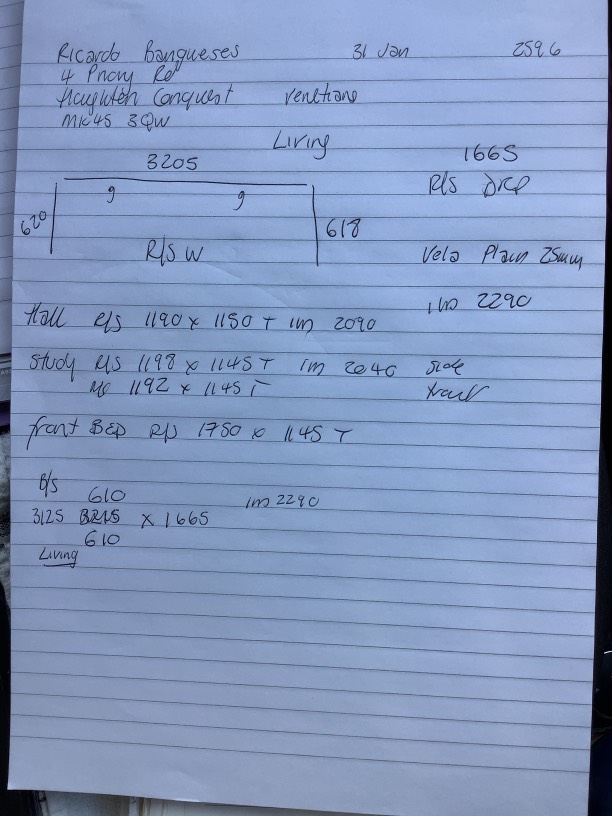 Ricardo Bangueses 31 Jan 2596
4 Priory Rd
Haughton Conquest venetians
MK45 3QW
Living
3205 1665
R/S Drop
9 9
620 618
R/S W Vela Plain 25mm
Hall R/S 1190 x 1150 T 1m 2090 1m 2290
Study R/S 1198 x 1145 T 1m 2040 side
1192 x 1145 T
front BED R/S 1750 x 1145 T
B/S
610 1m 2290
3125 3215 x 1665
610
Living